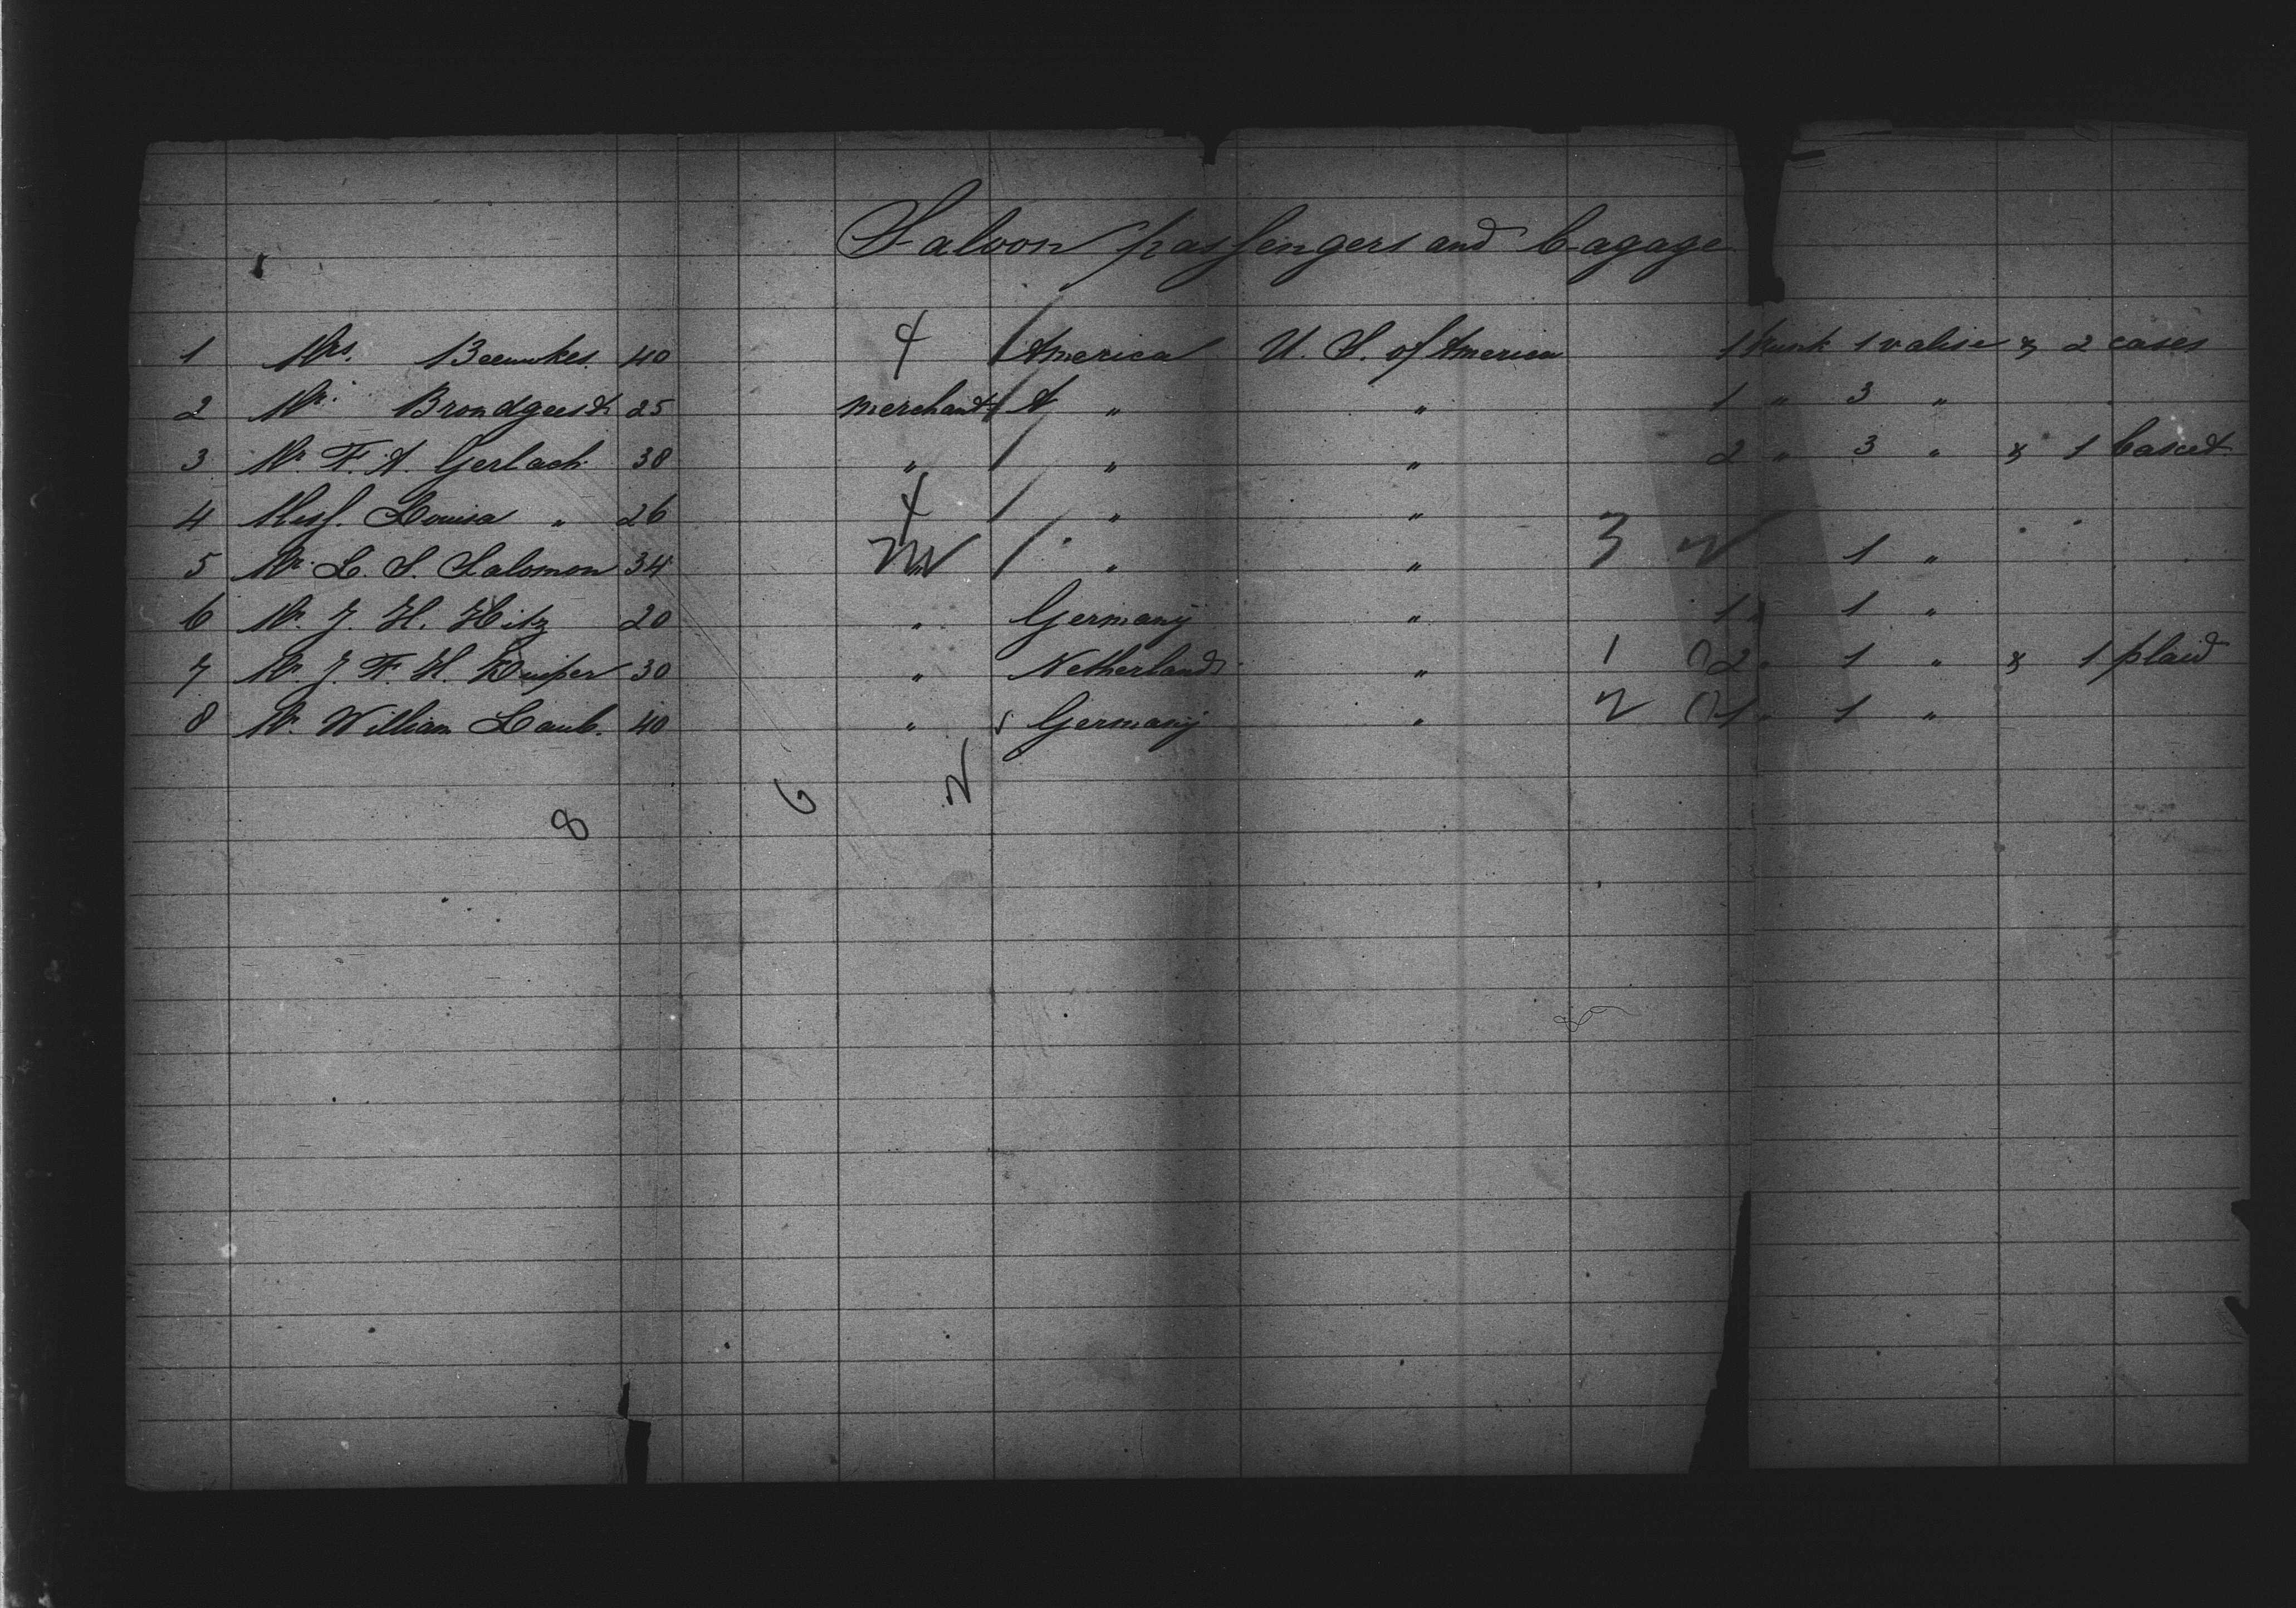 Saloon passengers and bagage
1 Mrs. Beeuwkes. 40 4 America U. S. of America 1 trunk 1 valise & 2 cases
2 Mr. Brondgeest 25 merchant A " " 1 " 3 "
3 Mr. F. A. Gerlach 38 " " " 2 " 3 " & 1 basced
4 Miss. Louisa " 26 4 " "
5 Mr. L. S. Salomon 34 " " " 3 2 1 "
6 Mr. J. H. Hitz 20 " Germany " 1 " 1 "
7 Mr. J. F. H. Kuiper 30 " Netherlands " 1 2 " 1 " & 1 plaid
8 Mr. William Laub. 40 " Germany " 2 1 " 1 "
8 6 2